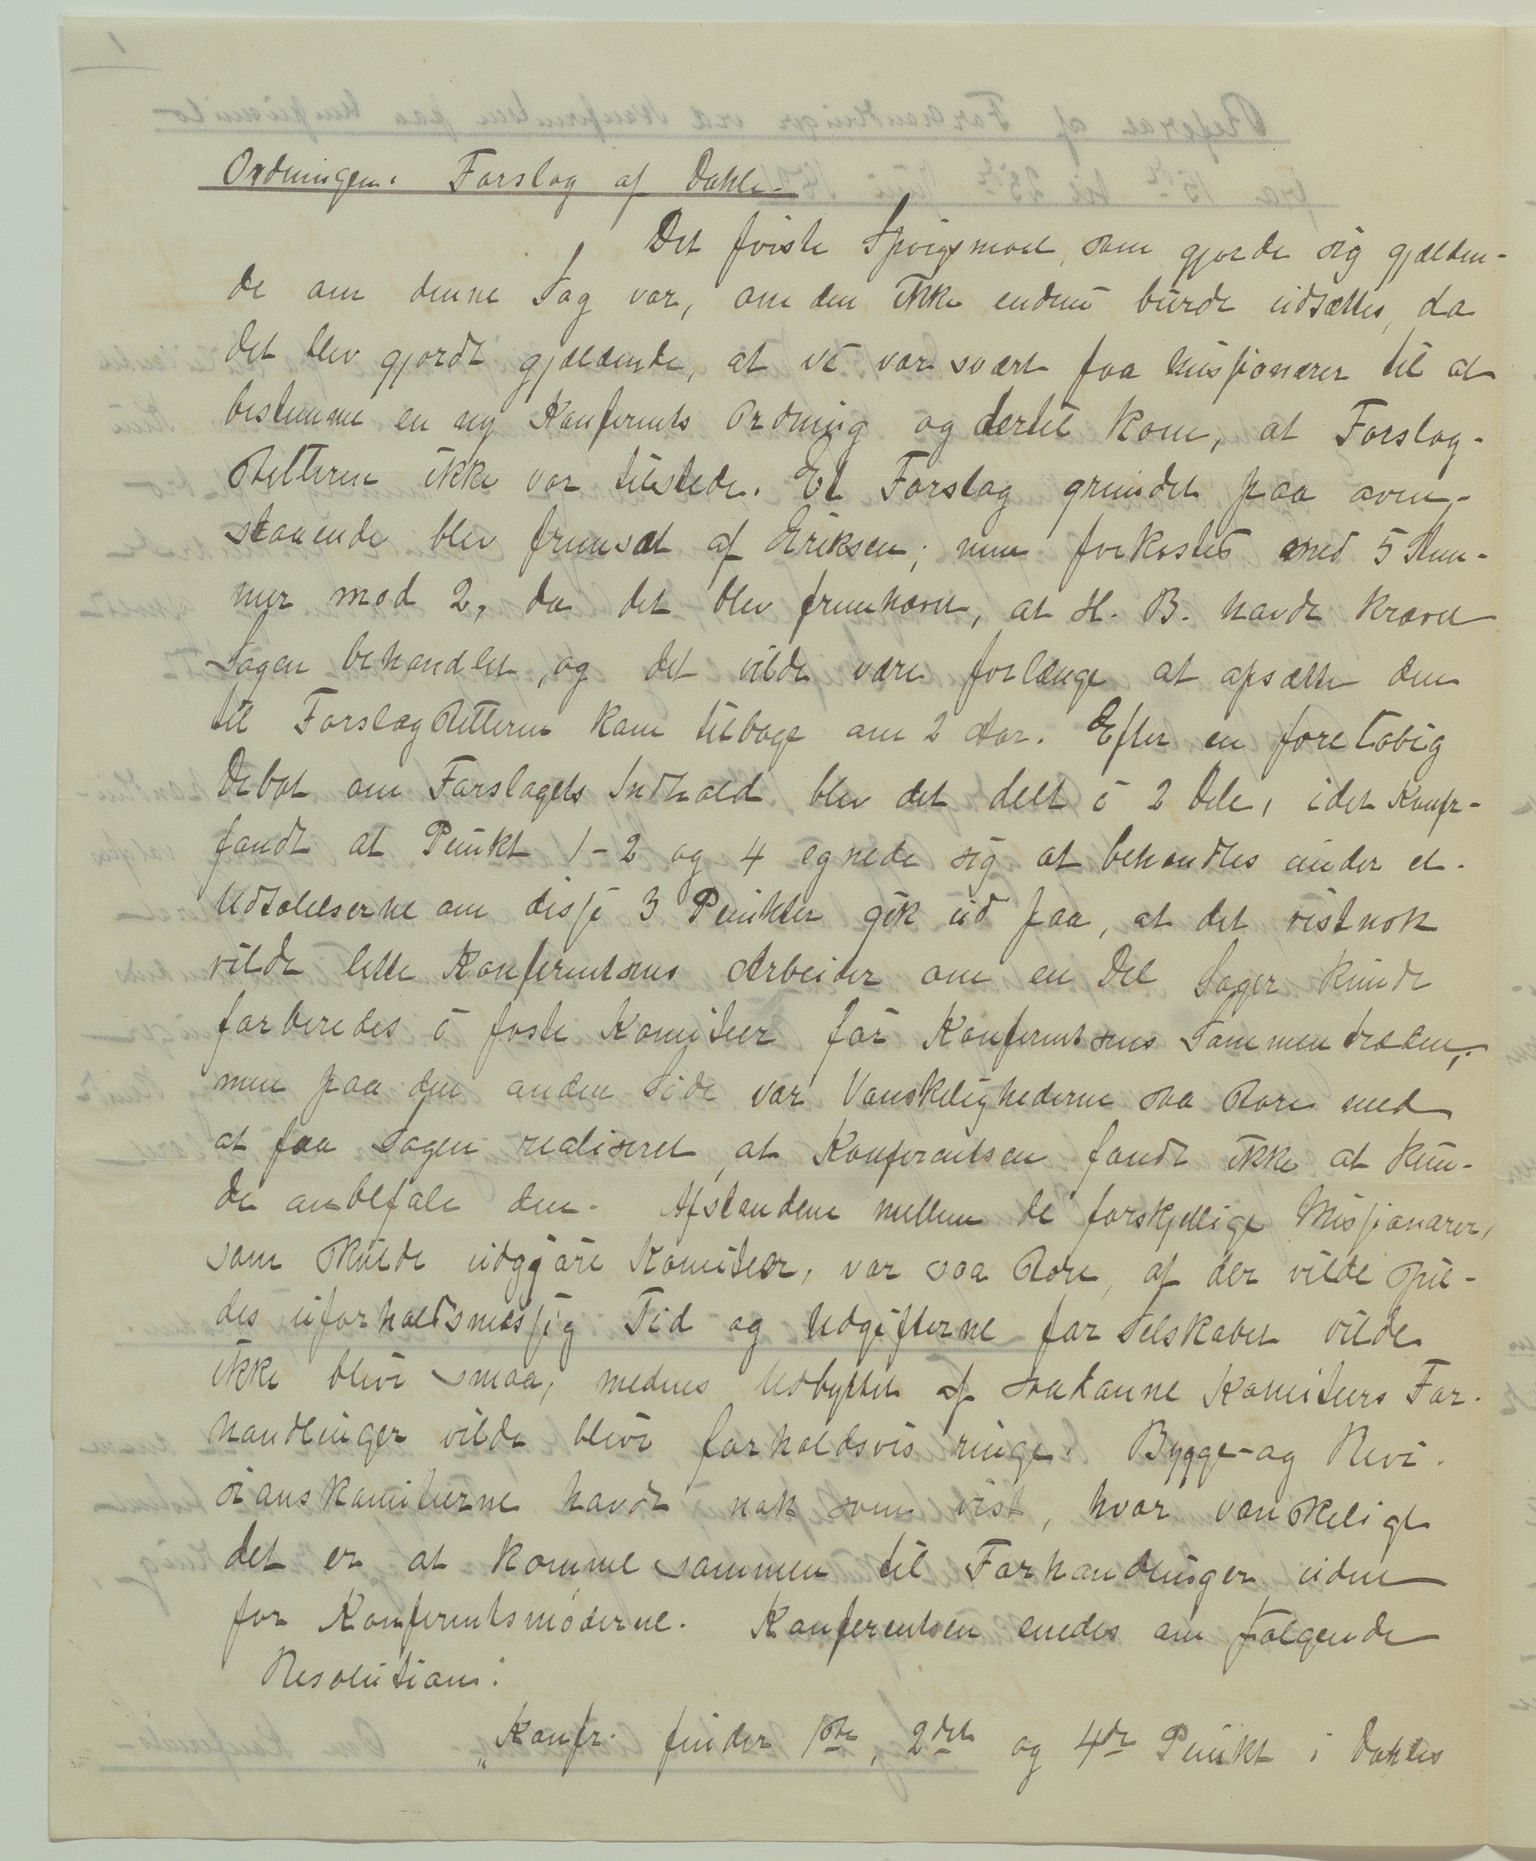 Ordningen. Forslag af Dahle.
Det første Spørgsmaal, som gjorde sig gjælden-
de om denne Sag var, om den ikke endnu burde udsættes, da
det blev gjordt gjældende, at vi var svært faa Missionærer til at
bestemme en ny Konferents Ordning og dertil kom, at Forslag-
stilleren ikke var tilstede. Et Forslag grundet paa oven-
staaende blev fremsat af Eriksen; men forkastet med 5 Stem-
mer mod 2, da det blev fremhævet, at H. B. havde krævet
Sagen behandlet, og det vilde være forlænge at opsætte den
til Forslagstilleren kom tilbage om 2 Aar. Efter en foreløbig
Debat om Forslagets Indhold blev det delt i 2 Dele, idet Konfr-
fandt at Punkt 1-2 og 4 egnede sig at behandles under et.
Udtalelserne om disse 3 Punkter gik ud paa, at det vistnok
vilde lette Konferentsens Arbeider om en Del Sager kunde
forberedes i faste Komiteer før Konferentsens Sammentræden,
men paa den anden Side var Vanskelighederne saa store med
at faa Sagen realiseret, at Konferentsen fandt ikke at kun-
de anbefale den. Afstandene mellem de forskjellige Missionærer,
som skulde udgjøre Komiteer, var saa store, at der vilde spil-
des uforholdsmæssig Tid og Udgifterne for Selskabet vilde
ikke blive smaa, medens Udbyttet af saadanne Komiteers For-
handlinger vilde blive forholdsvis ringe. Bygge- og Revi-
sionskomiteerne havde nok som vist, hvor vanskeligt
det er at komme sammen til Forhandlinger uden
for Konferentsmøderne. Konferentsen enedes om følgende
Resolution:
„Konfr. finder 1ste, 2det og 4de Punkt i Dahles